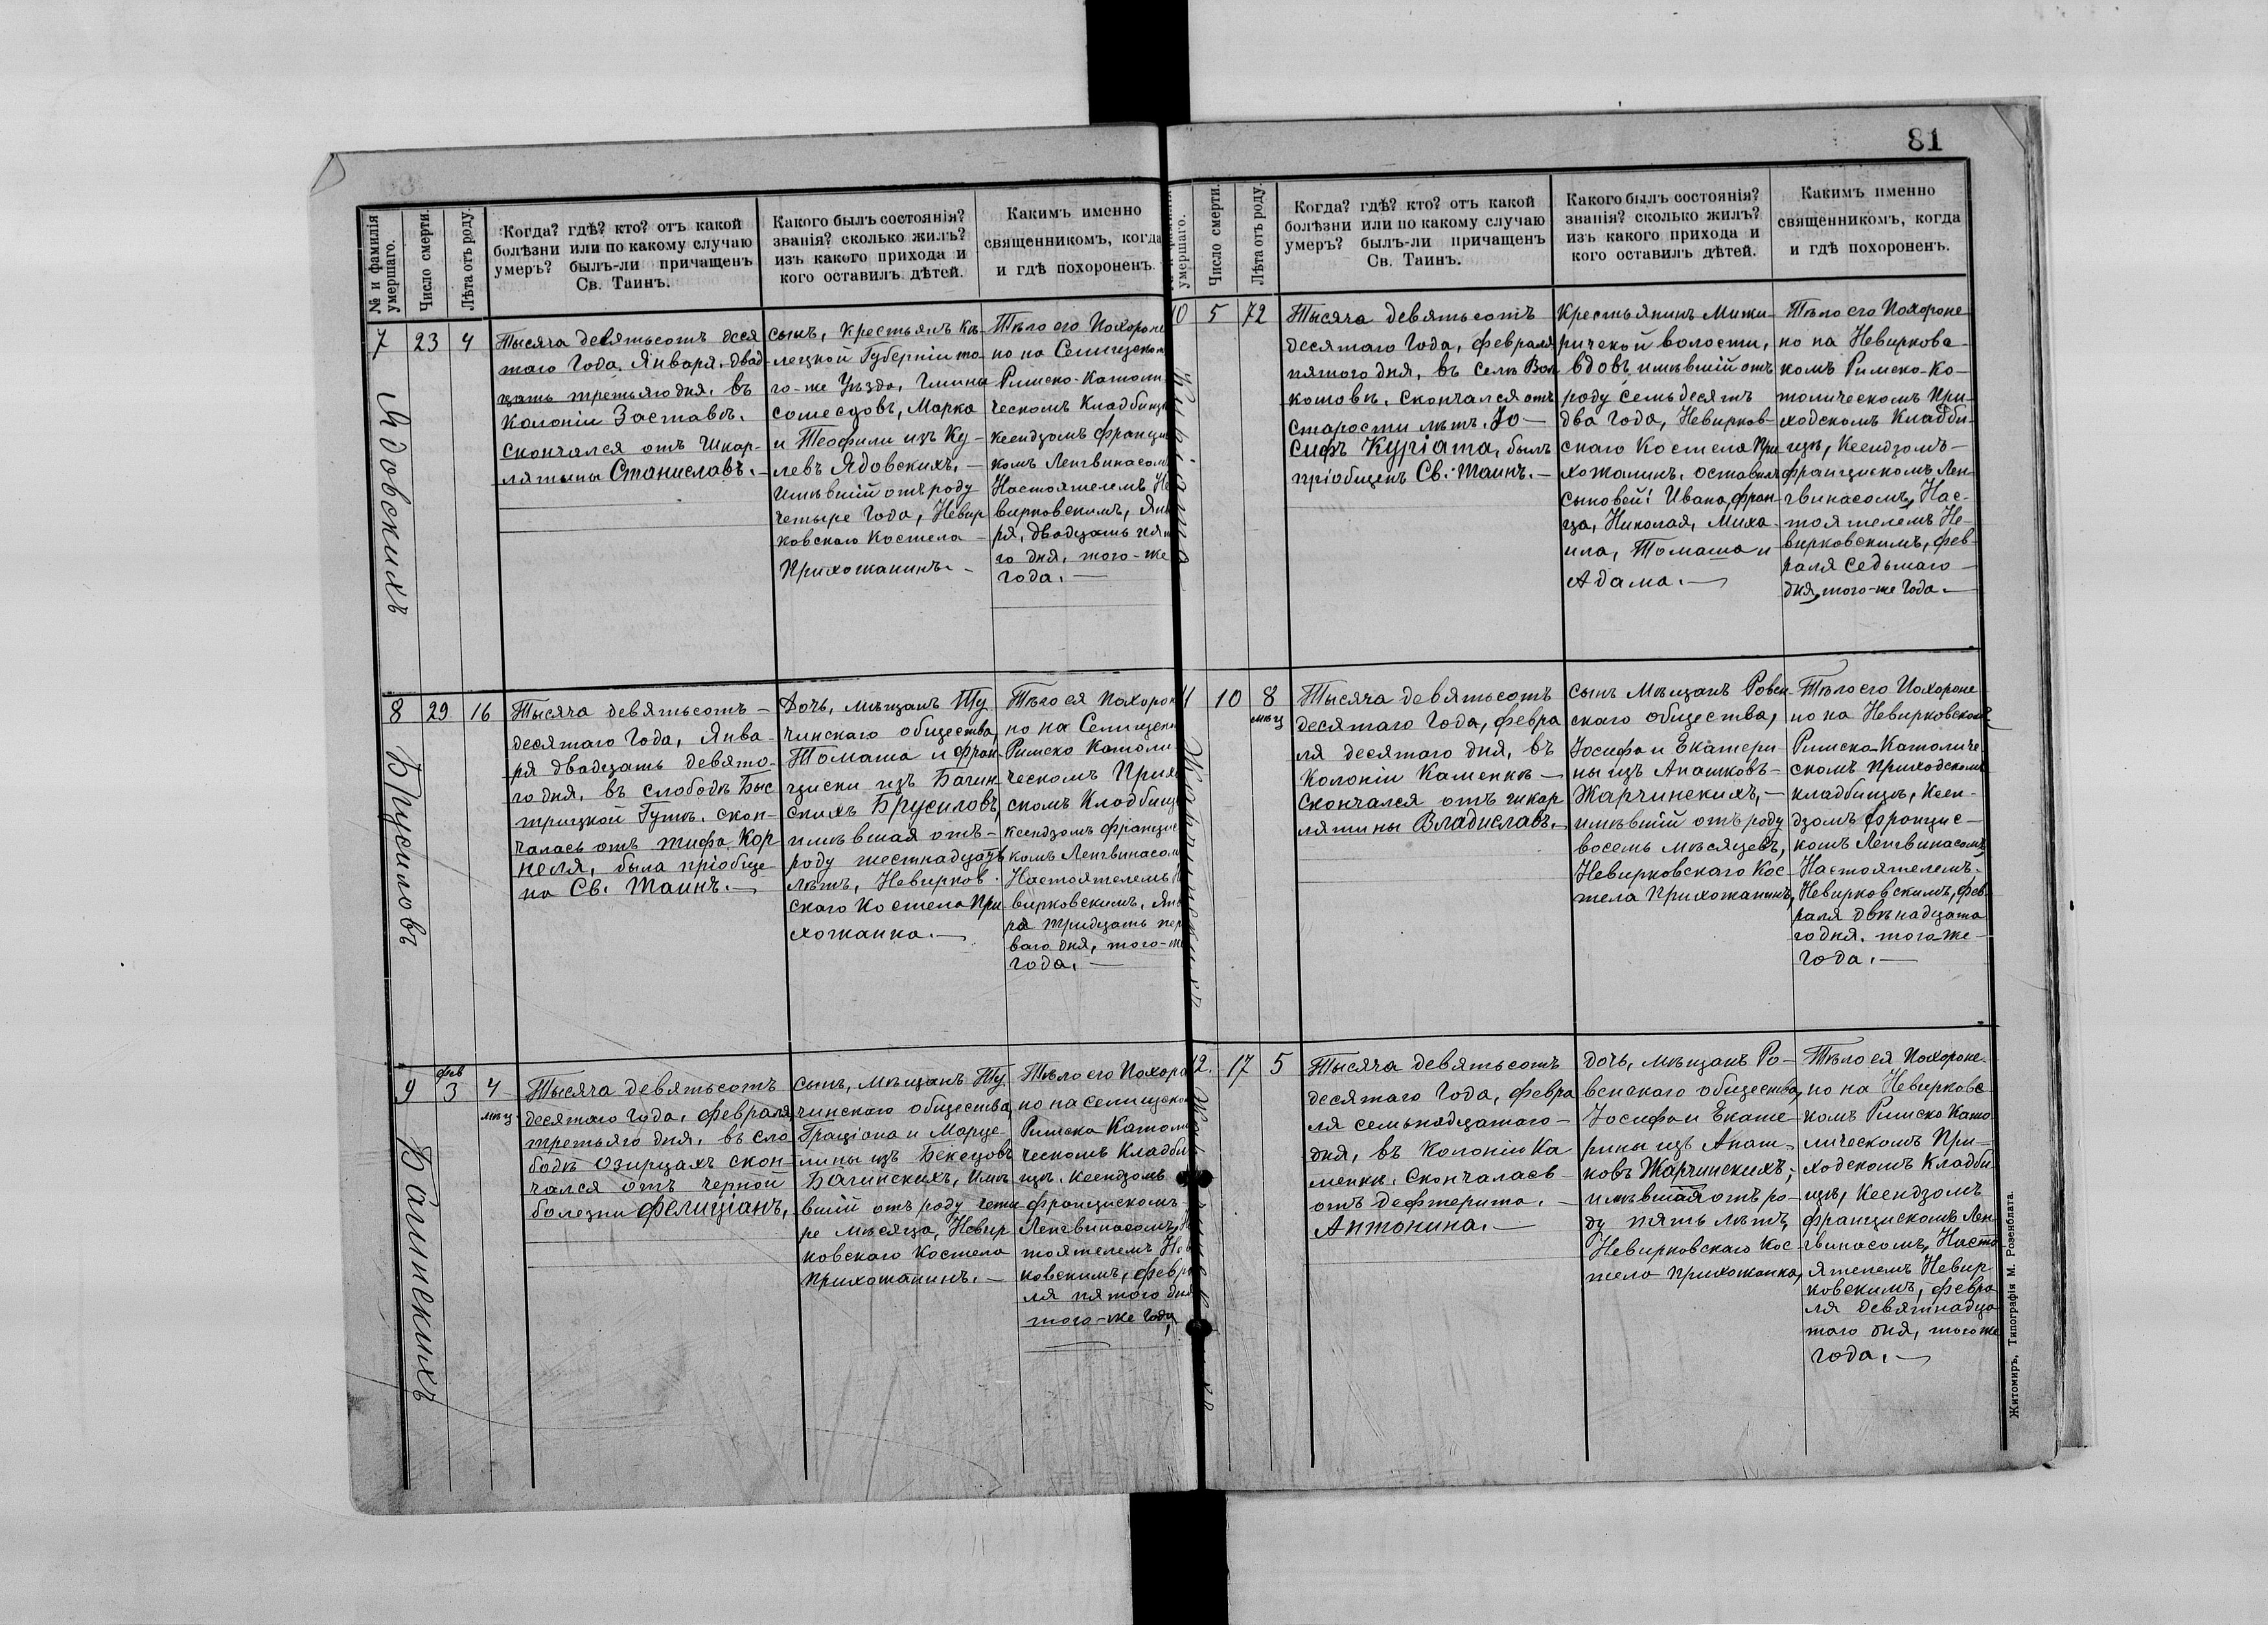 81
№ и фамилія умершаго.
Число смерти.
Лѣта отъ роду.
Когда? гдѣ? кто? отъ какой
болѣзни или по какому случаю
умеръ? былъ-ли причащенъ
Св. Таинъ.
Какого былъ состоянія?
званія? сколько жилъ?
изъ какого прихода и
кого оставилъ дѣтей.
Какимъ именно
священникомъ, когда
и гдѣ похороненъ.
7
Ядовскихъ
23
4
Тысяча девятьсотъ деся
таго Года, Января, двад
цать третьяго дня, въ
Колоніи Заставѣ.
Скончался отъ Шкар-
лятыны Станиславъ.—
сынъ, крестьянъ Кѣ-
лецкой Губерніи то-
го-же Уѣзда, Гмины
, Марка
и Теофили изъ Ку-
левъ Ядовскихъ.—
имѣвшій отъ роду
четыре Года, Невир
ковскаго Костела —
Прихожанинъ.-
Тѣло его Похороне
но на Селищско
Римско-Католи
ческомъ Кладбищѣ
Ксендзомъ Францис
комъ Ленгвинасом
Настоятелемъ Не
вирковскимъ, Янв
ря, двадцать пят
го дня, того-же
года.—
8
Брусиловъ
29
16
Тысяча девятьсотъ —
десятаго Года, Янва-
ря двадцать девято-
го дня, въ слободѣ Быс
трицкой Гутѣ. скон-
чалась отъ тифа Кор
неля, была пріобще
на Св. Таинъ.—
Дочь, мѣщанъ Ту
чинскаго общества,
Томаша и Фран-
циски изъ Багин
скихъ Брусиловъ,
имѣвшая отъ-
роду шестнадцать
лѣтъ, Невирков-
скаго Костела При
хожанка.—
Тѣло ея Похорон
но на Селищско
Римско Католи
ческомъ Прихо
скомъ Кладбищѣ
Ксендзомъ Францис
комъ Ленгвинасом
Настоятелемъ
вирковскимъ, Янв
ря тридцать пер
ваго дня, того-же
года.—
9
Багинскихъ
фев
3
4
мѣц
Тысяча девятьсотъ
десятаго Года, Февраля
третьяго дня, въ сло
бодѣ Озирцахъ скон-
чался отъ черной
болезни Фелиціанъ,
сынъ, мѣщанъ Ту
чинскаго общества,
Граціона и Марце-
лины изъ Бекецовъ
Багинскихъ, имѣ
вшій отъ роду четы
ре мѣсяца, Невир
ковскаго Костела
Прихожанинъ.—
Тѣло его Похоро
но на Селищско
Римско Католи
ческомъ Кладби
щѣ. Ксендзомъ
Францискомъ
Ленгвинасомъ,
тоятелемъ Нев
ковскимъ, февра
ля пятого дня
того-же Года,
умершаго.
Число смерти.
Лѣта отъ роду.
Когда? гдѣ? кто? отъ какой
болѣзни или по какому случаю
умеръ? былъ-ли причащенъ
Св. Таинъ.
Какого былъ состоянія?
званія? сколько жилъ?
изъ какого прихода и
кого оставилъ дѣтей.
Какимъ именно
священникомъ, когда
и гдѣ похороненъ.
10
5
72
Тысяча девятьсотъ
десятаго Года, февраля
пятого дня, въ селѣ Вол
котовѣ. Скончался отъ
старости лѣтъ. Іо-
сифъ Куріата, былъ
пріобщенъ Св. Таинъ.—
Крестьянинъ Межи-
ричской волости,
вдовъ имѣвшій отъ
роду семьдесятъ
два года, Невирков-
скаго Костела При
хожанинъ. Оставилъ
сыновей: Ивана, Фран-
ца, Николая, Миха-
ила, Томаша и
Адама.—
Тѣло его Похороне
но на Невирковс
комъ Римско-Ко-
толическомъ При-
ходскомъ Кладби-
щѣ, Ксендзомъ—
Францискомъ Лен-
гвинасомъ, Нас-
тоятелемъ Не-
вирковскимъ, фев-
раля седьмаго—
дня, того-же Года.—
11
10
8
мѣц
Тысяча девятьсотъ
десятаго Года, февра
ля десятаго дня, въ
Колоніи Каменкѣ—
Скончался отъ шкар
лятины Владиславъ.—
Сынъ Мѣщанъ Ровен
скаго общества,
Іосифа и Екатери-
ны изъ Апашковъ—
Жарчинскихъ,—
имѣвшій отъ роду
восемь мѣсяцевъ,
Невирковскаго Кос-
тела Прихожанинъ,
Тѣло его Похороне
но на Невирковском
Римско-Католиче
скомъ Приходскомъ
кладбищѣ, Ксен-
дзомъ Францис-
комъ Ленгвинасомъ
Настоятелемъ-
Невирковскимъ, фев-
раля двѣнадцата
го дня, того-же—
года.—
12.
17
5
Тысяча девятьсотъ
десятаго Года, февра
ля семьнядцатаго—
дня, въ Колоніи Ка
менкѣ. Скончалась—
отъ Дефтерита.—
Антонина.—
дочь, мѣщанъ Ро-
венскаго общества,
Іосифа и Екате-
рины изъ Апаш-
ковъ Жарчинскихъ,
имѣвшая отъ ро-
ду пять лѣтъ,
Невирковскаго Кос-
тела Прихожанка,
Тѣло ея Похороне-
но на Невирковс
комъ Римско Като
лическомъ При-
ходскомъ Кладби
щѣ, Ксендзомъ
Францискомъ Лен
гвинасомъ, Насто
ятелемъ Невир
ковскимъ, февра
ля девятнадца
таго дня, того же
года.—
Житомиръ, Типографія М. Розенблата.